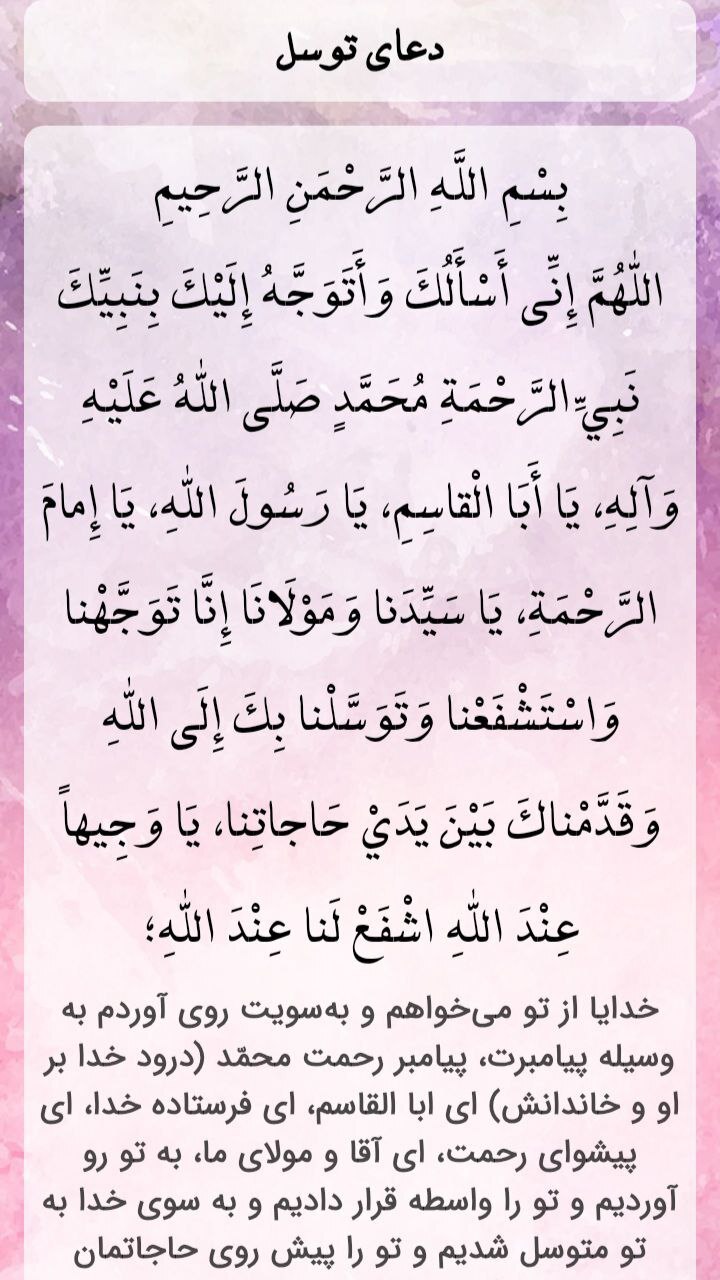 دعای توسل
بِسْمِ اللَّهِ الرَّحْمَنِ الرَّحِيمِ
اللّٰهُمَّ إِنِّى أَسْأَلُكَ وَأَتَوَجَّهُ إِلَيْكَ بِنَبِيِّكَ
نَبِيِّ الرَّحْمَةِ مُحَمَّدٍ صَلَّى اللّٰهُ عَلَيْهِ
وَآلِهِ، يَا أَبَا الْقاسِمِ، يَا رَسُولَ اللّٰهِ، يَا إِمامَ
الرَّحْمَةِ، يَا سَيِّدَنا وَمَوْلَانَا إِنَّا تَوَجَّهْنا
وَاسْتَشْفَعْنا وَتَوَسَّلْنا بِكَ إِلَى اللّٰهِ
وَقَدَّمْناكَ بَيْنَ يَدَيْ حَاجاتِنا، يَا وَجِيهاً
عِنْدَ اللّٰهِ اشْفَعْ لَنا عِنْدَ اللّٰهِ؛
خدایا از تو می‌خواهم و به‌سویت روی آوردم به
وسیله پیامبرت، پیامبر رحمت محمّد (درود خدا بر
او و خاندانش) ای ابا القاسم، ای فرستاده خدا، ای
پیشوای رحمت، ای آقا و مولای ما، به تو رو
آوردیم و تو را واسطه قرار دادیم و به سوی خدا به
تو متوسل شدیم و تو را پیش روی حاجاتمان